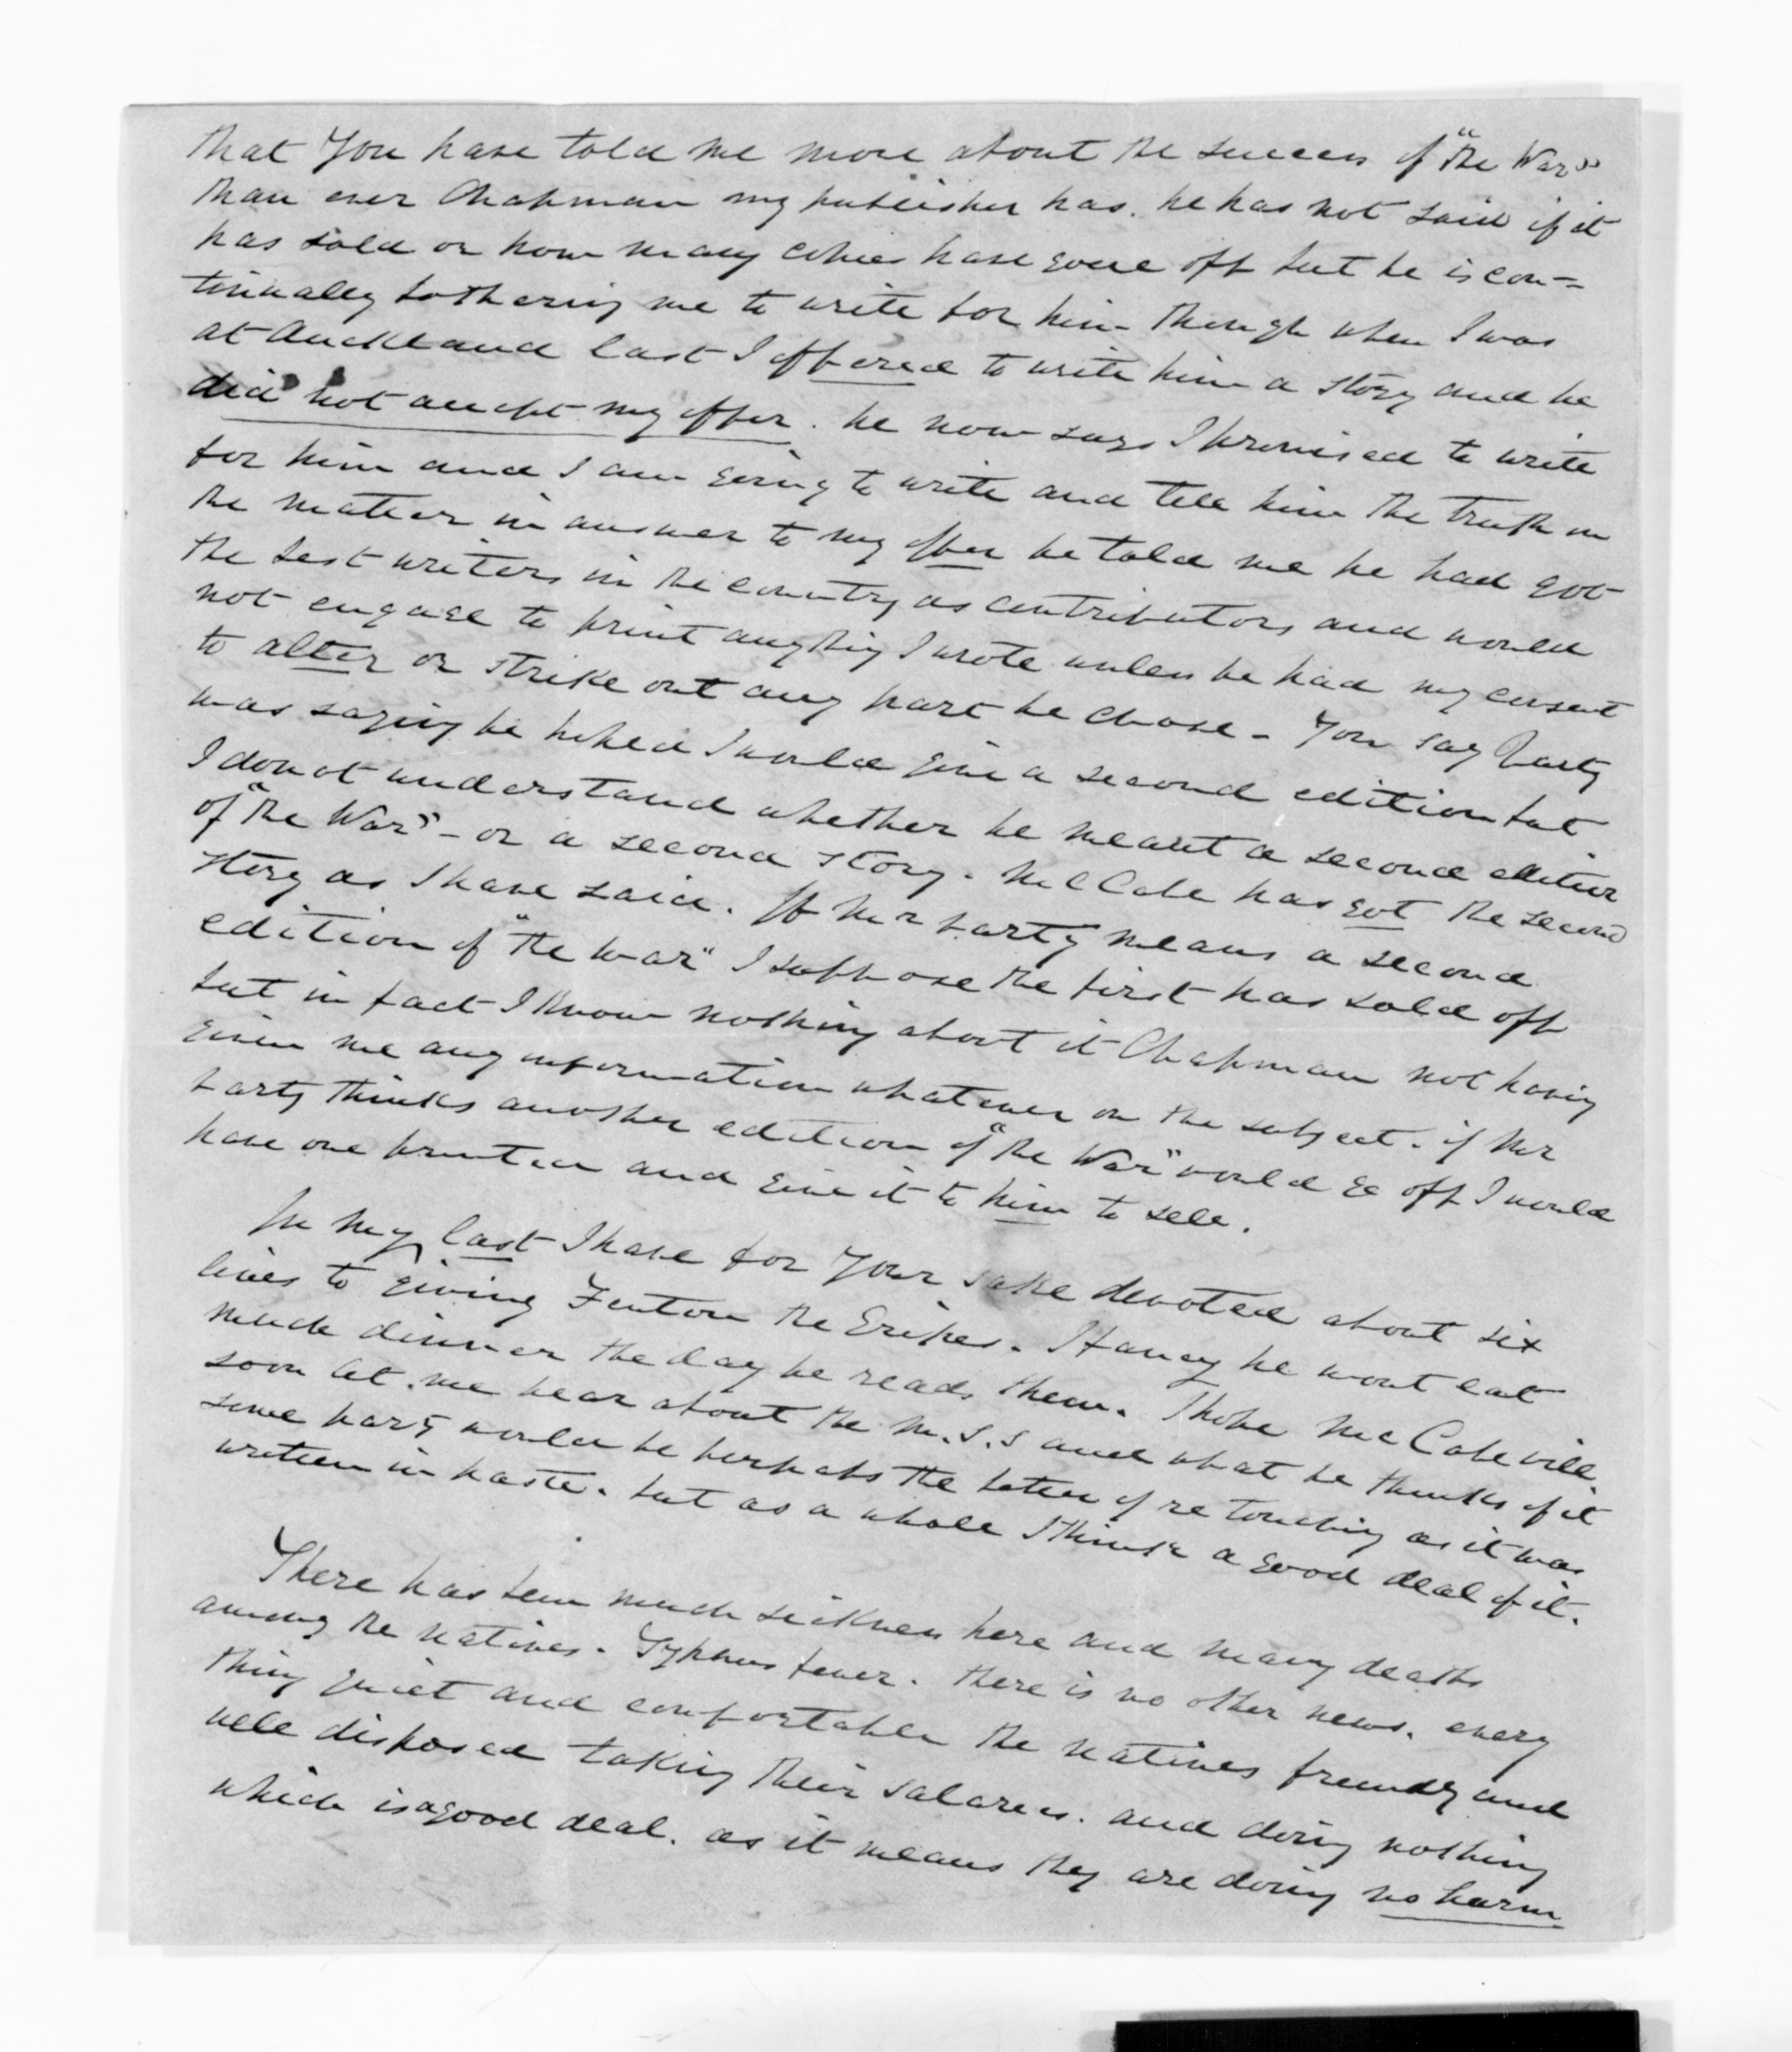 that You have told me more about the success of "the War"
than ever Chapman my publisher has. he has not said if it
has sold or how many copies have gone off but he is con=
tinually bothering me to write for him though when I was
at Auckland last I offered to write him a story and he
did not accept my offer. he now says I promised to write
for him and I am going to write and tell him the truth on
the matter in answer to my offer he told me he had got
the best writers in the country as contributors and would
not engage to print anything I wrote unless he had my consent
to alter or strike out any part he chose - You say Varty
was saying he hoped I would give a second edition but
I do not understand whether he meant a second edition
of "the War" - or a second story. McCabe has got the second
story as I have said. If Mr Varty means a second
edition of "the war" I suppose the first has sold off
but in fact I know nothing about it Chapman not having
given me any information whatever on the subject. if Mr
Varty thinks another edition of "the War" would go off I would
have one printed and give it to him to sell.
In my last I have for Your sake devoted about six
lines to giving Fenton the Gripes. I fancy he wont eat
much dinner the day he reads them. I hope McCabe will
soon let me hear about the M.S.S and what he thinks of it
some part would be perhaps the better of re touching as it was
written in haste. but as a whole I think a good deal of it.
There has been much sickness here and many deaths
among the natives. Typhus fever. there is no other news. every
thing quiet and comfortable the natives friendly and
well disposed taking their salaries. and doing nothing
which is a good deal. as it means they are doing no harm